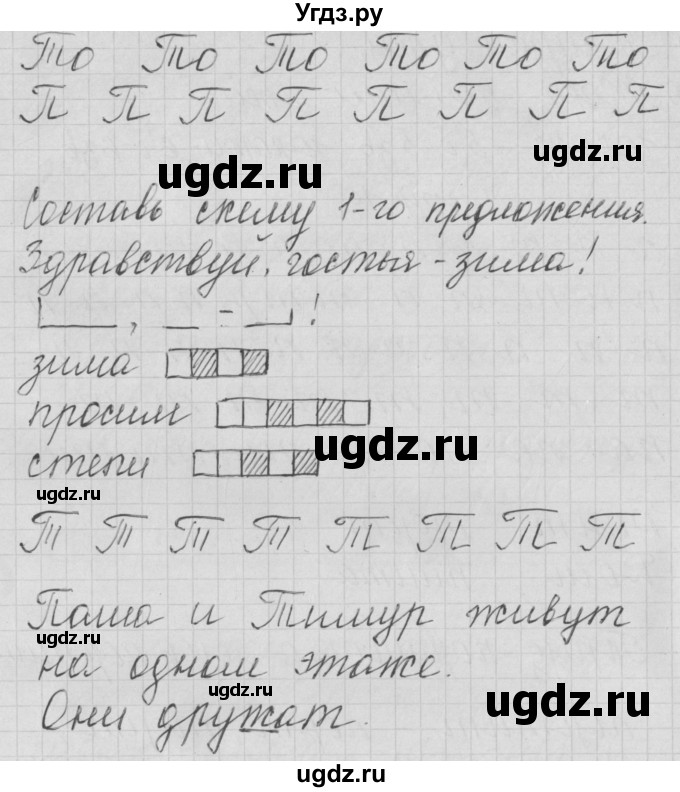 Угдз.ру
То То То То То То
П П П П П П П П
ugdz.ru ugdz.ru
Составь схему 1-го предложения.
Здравствуй, гостья - зима!
, - !
зима
просим
ugdz.ru
степи
ugdz.ru
Т Т Т Т Т Т Т Т
Паша и Тимур живут
ugdz.ru
на одном этаже.
ugdz.ru ugdz.ru
Они дружат.
ugdz.ru